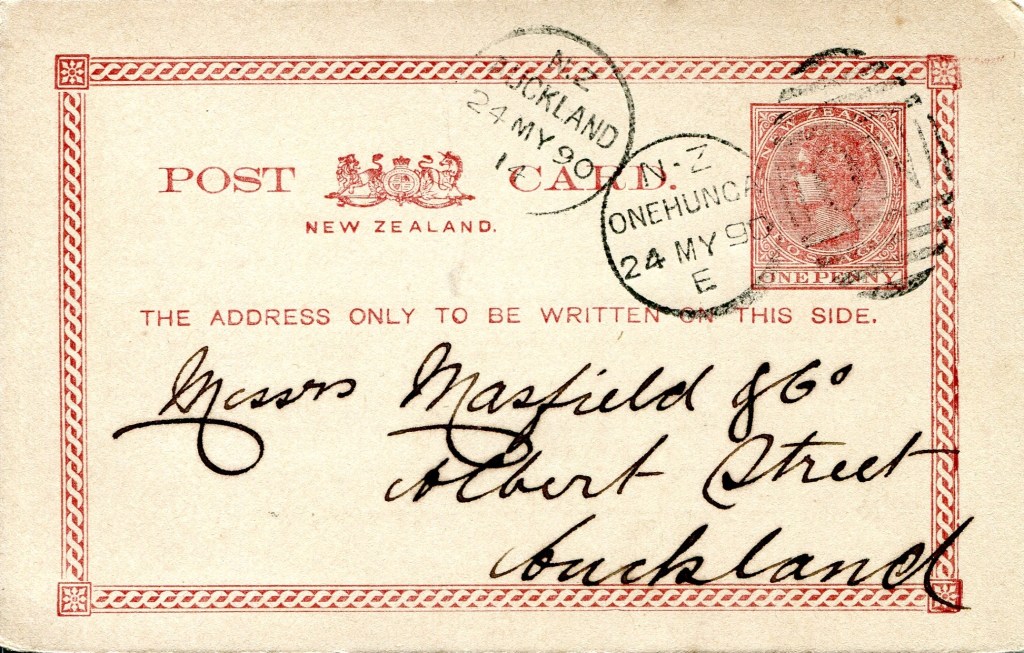 N.Z
AUCKLAND
24 MY 90
14
N.Z
ONEHUNGA
24 MY 90
E
ONE PENNY
POST CARD.
NEW ZEALAND.
THE ADDRESS ONLY TO BE WRITTEN ON THIS SIDE.
Messrs Masfield & Co
Albert Street
Auckland